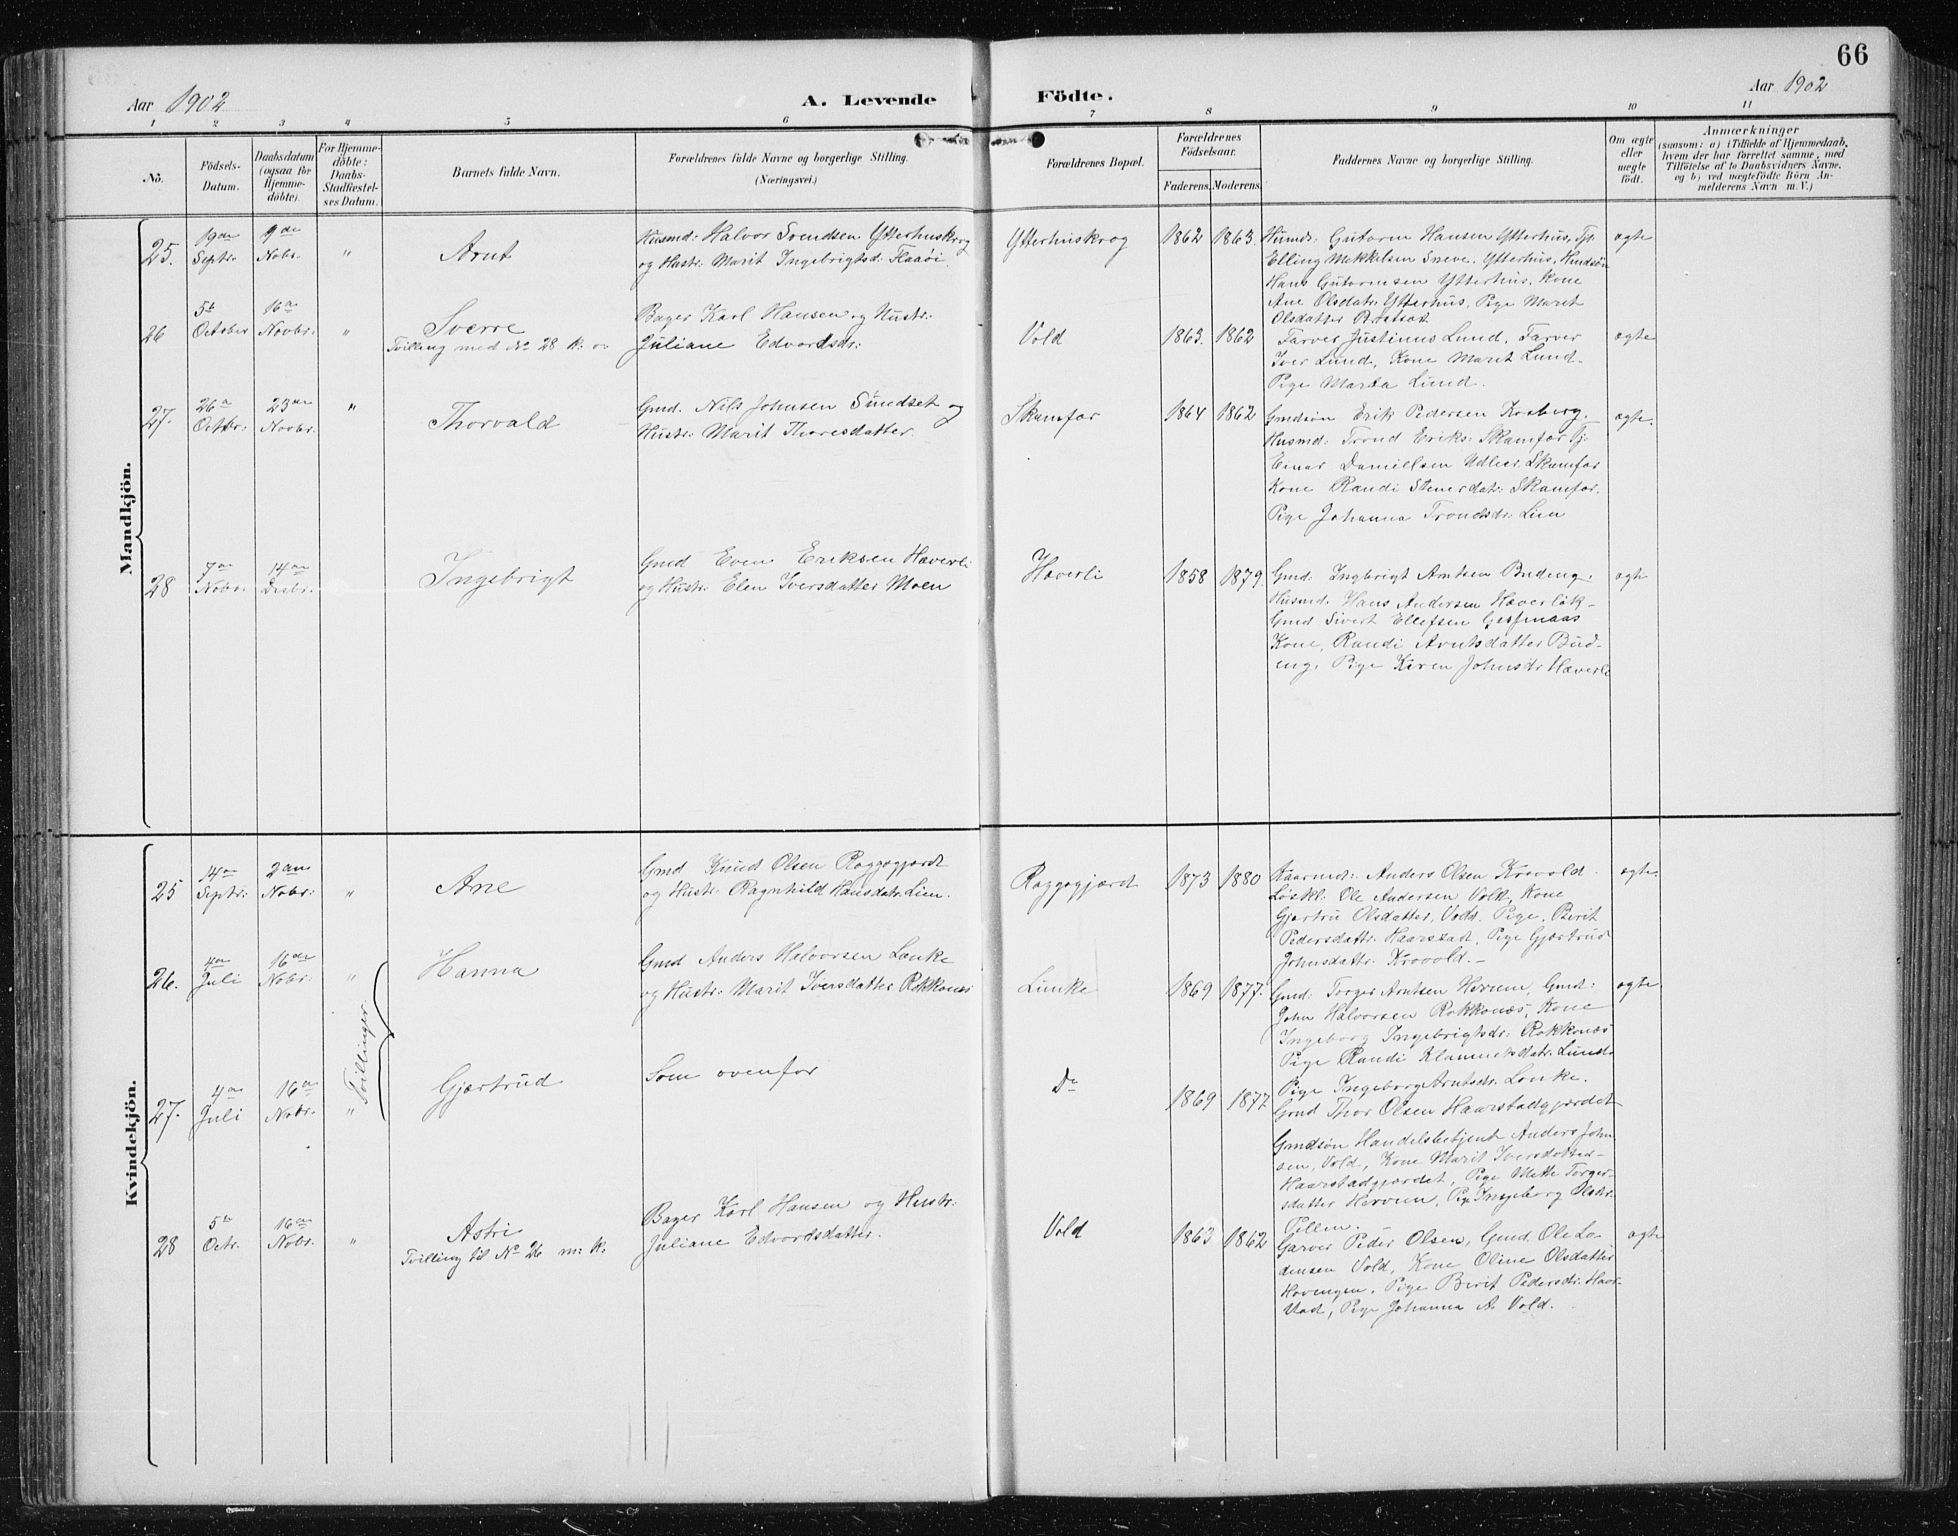 66
Aar 1902
A. Levende Födte.
Aar 1902
1 2 3 4 5 6 7 8 9 10 11
No.
Födsels-Datum.
Daabsdatum (ogsaa for Hjemmedöbte)
For Hjemmedöbte: Daabs-Stadfæstelses Datum.
Barnets fulde Navn.
Forældrenes fulde Navne og borgerlige Stilling.
(Næringsvei.)
Forældrenes Bopæl.
Forældrenes Födselsaar.
Faderens. Moderens.
Faddernes Navne og borgerlige Stilling.
Om ægte eller uægte födt.
Anmærkninger
(saasom: a) i Tilfælde af Hjemmedaab,
hvem der har forrettet samme, med
Tilföielse af to Daabsvidners Navne,
og b) ved uægtefödte Börn Anmelderens Navn m. V.)
Mandkjön.
25. 19de Septr. 9de Nobr. " Arnt
Husmd: Halvor Svendsen Ytterhuskrog
og Hustr: Marit Ingebrigtsd. Flaaöi.
Ytterhuskrog 1862 1863.
Husmd: Gutorm Hansen Ytterhus, Tj.
Elling Mekkelsen Sneve, Ytterhus, Husön
Hans Gutormsen Ytterhus, Kone
Ane Olsdatr: Ytterhus, Pige Marit
Olsdatter
ægte
26 5te October 16de Novbr: " Sverre
Tvilling med No 28 k.
Bager Karl Hansen og Hustr:
Juliane Edvardsdr:
Vold 1863. 1862
Farver Justinus Lund, Farver
Iver Lund, Kone Marit Lund
Pige Marta Lund.
ægte
27. 26de Octbr: 23de Novbr: " Thorvald
Gmd. Nils Johnsen Sundset og
Hustr: Marit Thoresdatter.
Skamfær 1864 1862
Gmdsön Erik Pedersen Kosberg,
Husmd: Trond Eriks: Skamfær Tj.
Einar Daniellsen Udler Skamfær
Kone Randi Stenersdatr: Skamfær.
Pige Johanna Trondsdr: Lien
ægte.
28 7de Nobr. 14de Decbr. Ingebrigt
Gmd Even Eriksen Hæverli
og Hustr: Elen Iversdatter Moen
Hæverli 1858 1879.
Gmd: Ingbrigt Arntsen Budeng.
Husmd. Hans Andersen Hæverlök
Gmd Sivert Ellefsen
Kone, Randi Arntsdatter Budeng,
Pige Karen Johnsdr Hæverli
ægte
Kvindekjön.
25 14de Septr: 2den Nobr: " Ane
Gmd Knud Olsen Roggegjærdt
og Hustr: Ragnhild Hansdatr: Lien.
Roggegjærdt 1873 1880
Kaarmd: Anders Olsen Krovold.
Löskl: Ole Andersen Vold, Kone
Gjertru Olsdatter, Vold. Pige, Berit
Pedersdattr: Haarstad, Pige Gjærtrud
Johnsdattr: Krovold.
ægte.
26. 4de Juli 16de Nobr. " Hanna
Tvillinger
Gmd Anders Halvorsen Lænke
og Hustr: Marit Iversdatter Rokkones
Lænke 1869 1877.
Gmd: Torger Arntsen Hervem, Gmd:
John Halvorsen Rokkones, Kone
Ingeborg Ingebrigtsdr: Rokkones
Pige Randi Klemmetsdatr: Lund
Pige Ingeborg Arntsdr: Lænke.
ægte
27. 4de Juli 16de Nobr. " Gjærtrud
Som ovenfor
Do 1869 1877
Gmd Thor Olsen Haarstadgjærdet
Gmdsön Handelsbetjent Anders Johnsen,
Vold, Kone Marit Iversdotter
Haarstadgjærdet, Pige Mette Torgersdatter
Hervem, Pige Ingeborg Olsdr.
Tillem.
28 5te Octr. 16de Nobr. " Astri
Tvilling til No 26 m: k.
Bager Karl Hansen og Hustr:
Juliane Edvardsdatter.
Vold 1863 1862
Garver Peder Olsen, Gmd. Ole Ladensen
Vold, Kone Oline Olsdatter
Hovengen, Pige Berit Pedersdr: Haarstad,
Pige Johanna A. Vold.
ægte